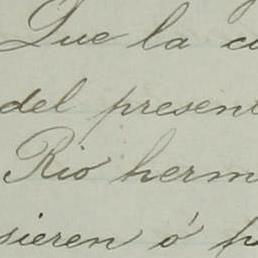 Que la c
del present
Rio herm
sieren ó p